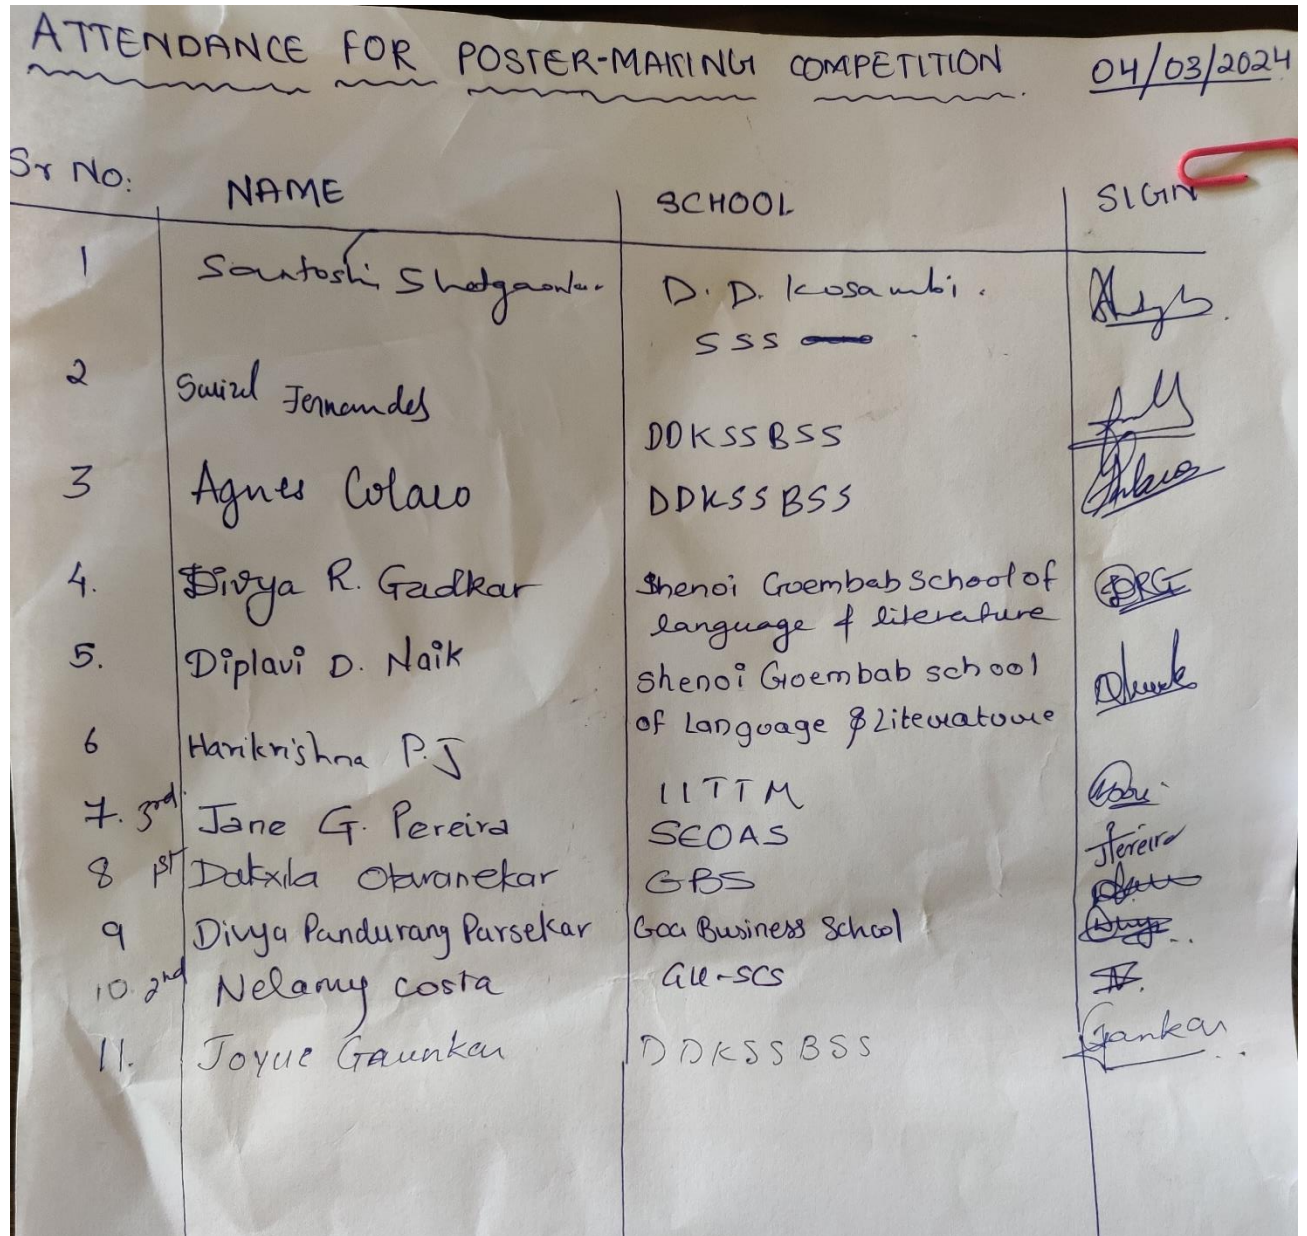 ATTENDANCE FOR POSTER-MAKING COMPETITION 04/03/2024
Sr No: NAME SCHOOL SIGN
1 Santoshi Shetgaonkar D. D. Kosambi.
SSS
2 Swizel Fernandes DDKSSBSS
3 Agnes Colaco DDKSSBSS
4. Divya R. Gadkar Shenoi Goembab School of
language & literature
5. Diplavi D. Naik Shenoi Goembab school
of Language & Literature
6 Harikrishna P.J IITTM
7. 3rd. Jane G. Pereira SEOAS JPereira
8 1st Datxila Otavanekar GBS
9 Divya Pandurang Parsekar Goa Business School
10. 2nd Nelamy costa GU-SCS
11. Joyue Gaunkar DDKSSBSS Gankar